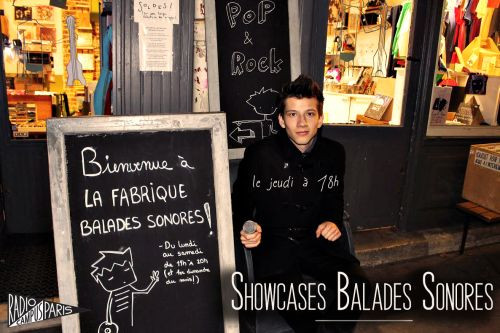 SOLDES!
POP
&
ROCK
Bienvenue à
LA FABRIQUE
BALADES SONORES!
- Du lundi
au samedi
de 11h à 20h
(et 1er dimanche
du mois!)
le jeudi à 18h
SHOWCASES BALADES SONORES
RADIO
CAMPUS PARIS